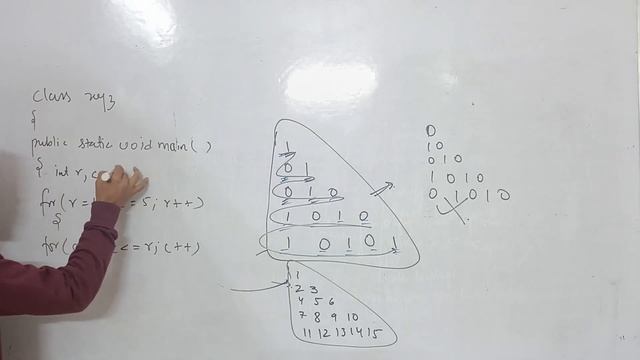 class xy3
{
public static void main( )
{ int r, c
for( r = = 5; r++)
{
for( <= r; c++)
1
0 1
0 1 0
1 0 1 0
1 0 1 0 1
1
2 3
4 5 6
7 8 9 10
11 12 13 14 15
0
1 0
0 1 0
1 0 1 0
0 1 0 1 0